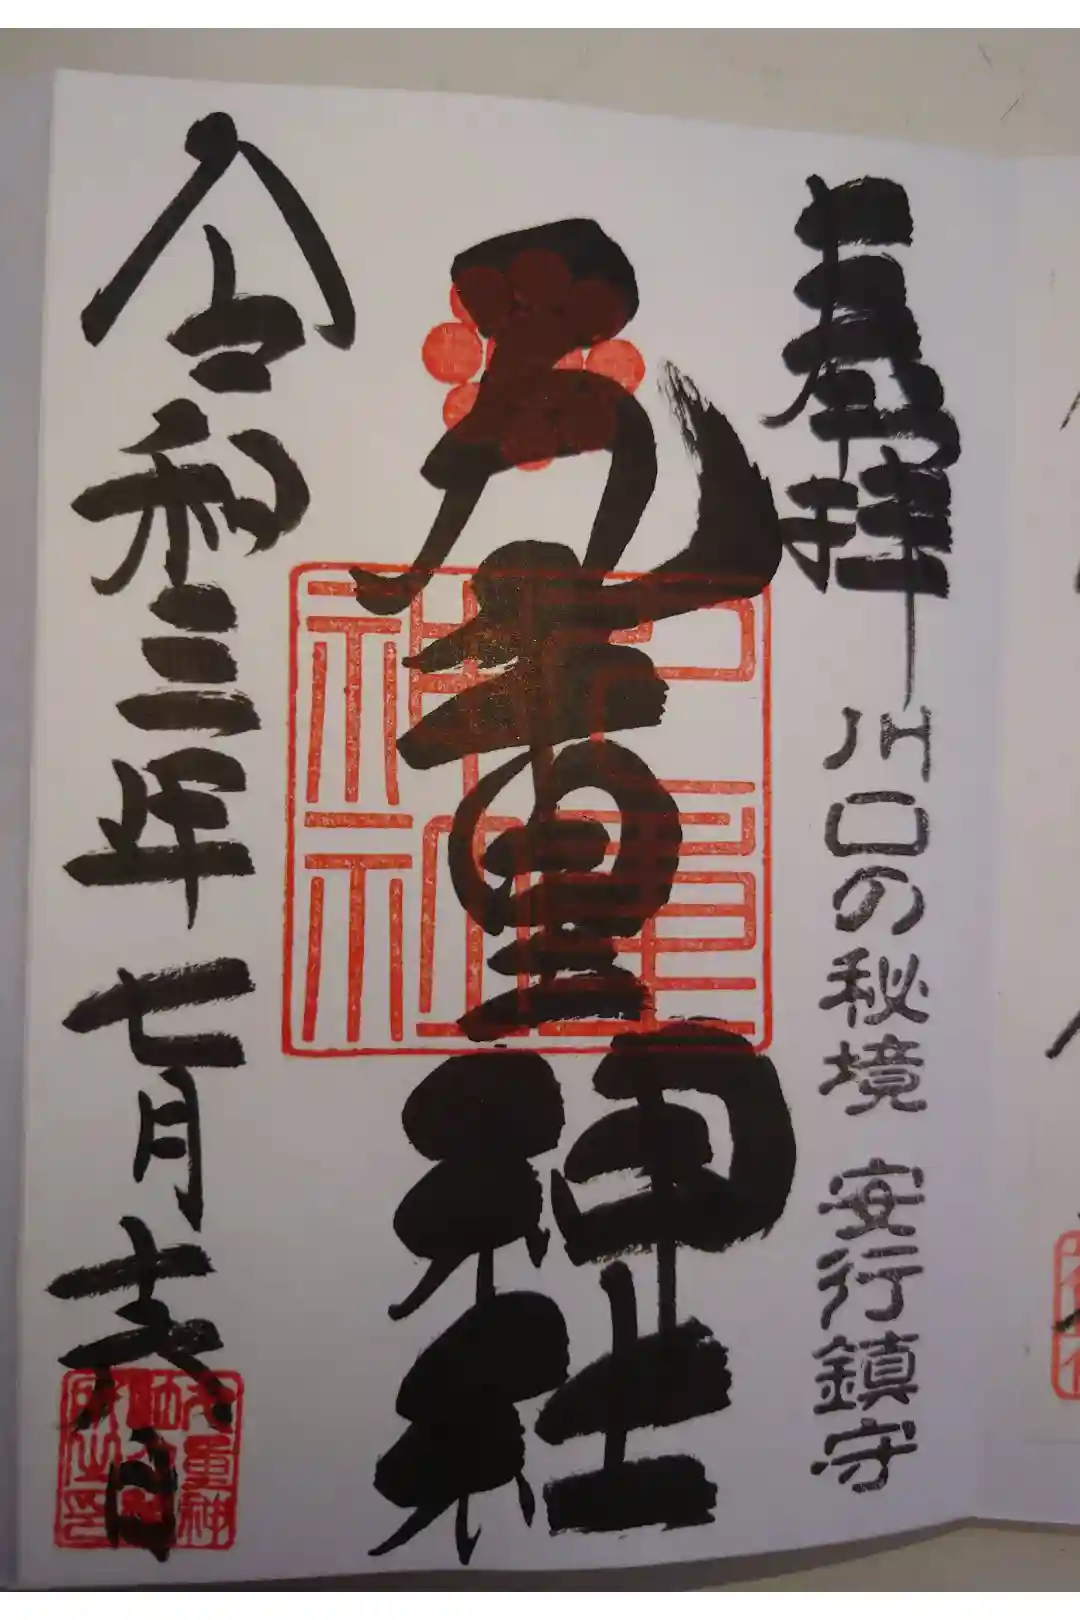 奉拝
川口の秘境 安行鎮守
九重神社
九重
神社
令和三年七月十六日